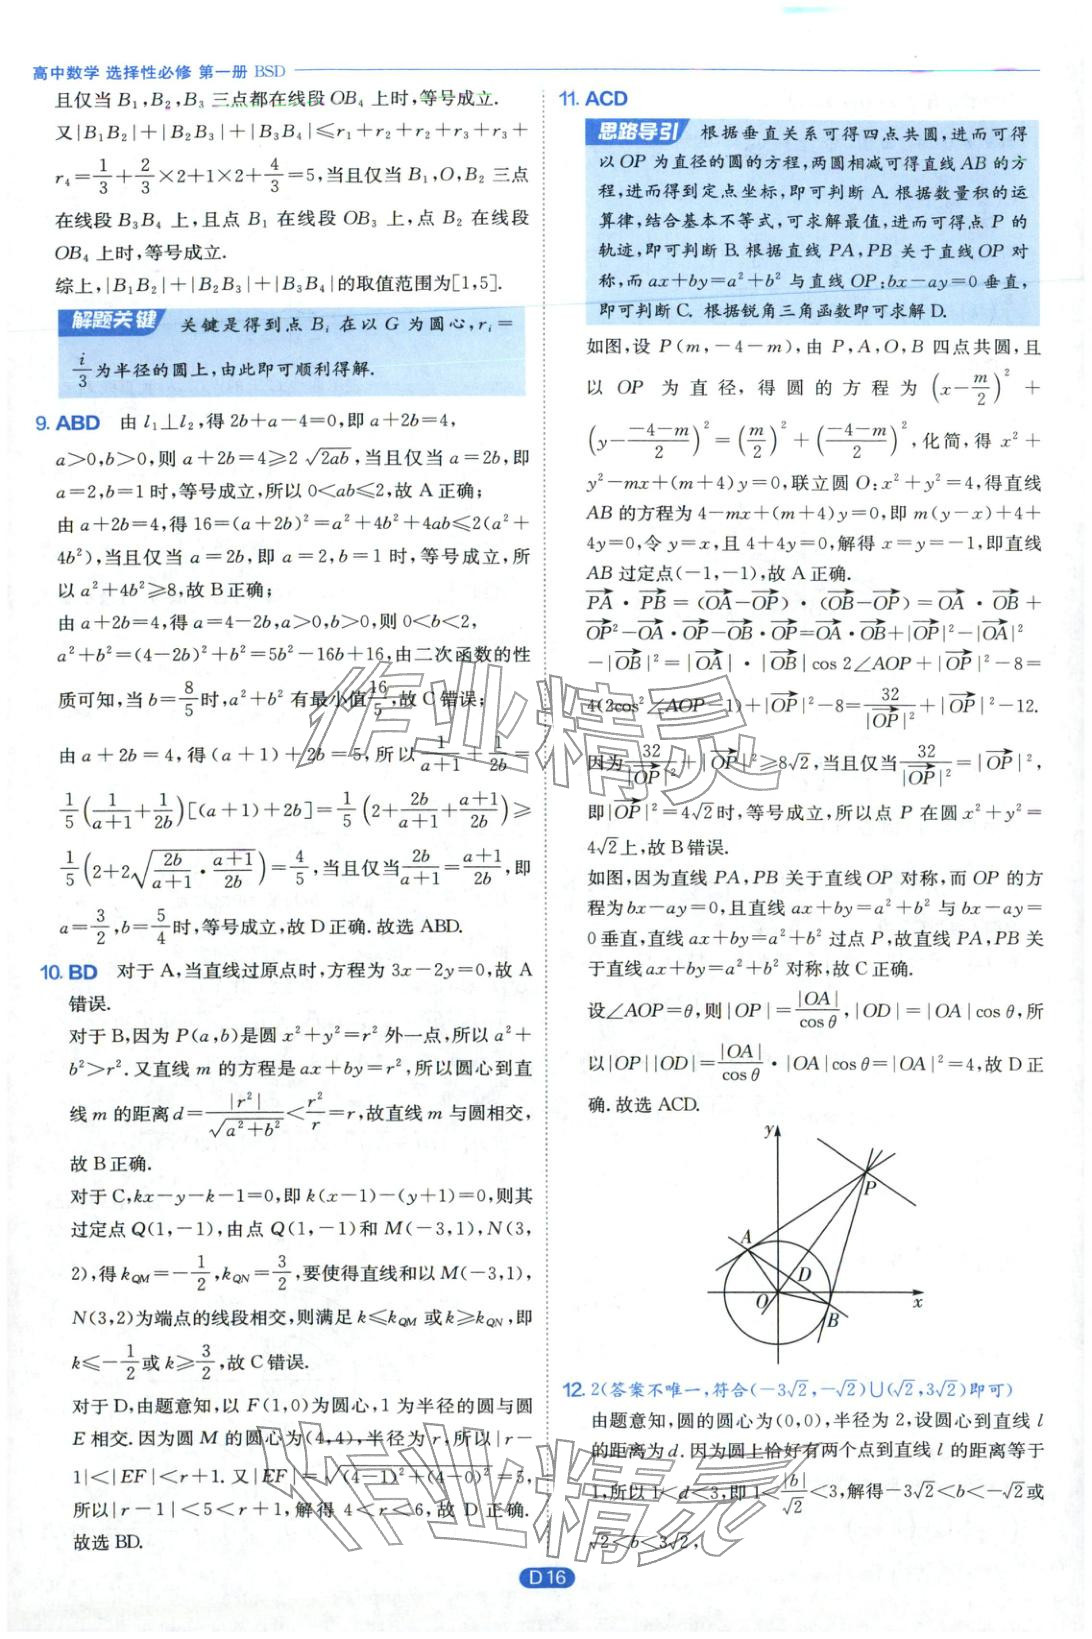 高中数学 选择性必修 第一册 BSD
且仅当 B₁,B₂,B₃ 三点都在线段 OB₄ 上时,等号成立.
又|B₁B₂|+|B₂B₃|+|B₃B₄|≤r₁+r₂+r₂+r₃+r₃+
r₄=1/3+2/3×2+1×2+4/3=5,当且仅当 B₁,O,B₂ 三点
在线段 B₃B₄ 上,且点 B₁ 在线段 OB₃ 上,点 B₂ 在线段
OB₄ 上时,等号成立.
综上,|B₁B₂|+|B₂B₃|+|B₃B₄|的取值范围为[1,5].
解题关键 关键是得到点 Bᵢ 在以 G 为圆心,rᵢ=
i/3为半径的圆上,由此即可顺利得解.
9. ABD 由 l₁⊥l₂,得 2b+a-4=0,即 a+2b=4,
a>0,b>0,则 a+2b=4≥2√(2ab),当且仅当 a=2b,即
a=2,b=1 时,等号成立,所以 0<ab≤2,故 A 正确;
由 a+2b=4,得 16=(a+2b)²=a²+4b²+4ab≤2(a²+
4b²),当且仅当 a=2b,即 a=2,b=1 时,等号成立,所
以 a²+4b²≥8,故 B 正确;
由 a+2b=4,得 a=4-2b,a>0,b>0,则 0<b<2,
a²+b²=(4-2b)²+b²=5b²-16b+16,由二次函数的性
质可知,当 b=8/5时,a²+b² 有最小值16/5,故 C 错误;
由 a+2b=4,得(a+1)+2b=5,所以1/(a+1)+1/(2b)=
1/5(1/(a+1)+1/(2b))[(a+1)+2b]=1/5(2+2b/(a+1)+(a+1)/(2b))≥
1/5(2+2√(2b/(a+1)·(a+1)/(2b)))=4/5,当且仅当2b/(a+1)=(a+1)/(2b),即
a=3/2,b=5/4时,等号成立,故 D 正确.故选 ABD.
10. BD 对于 A,当直线过原点时,方程为 3x-2y=0,故 A
错误.
对于 B,因为 P(a,b)是圆 x²+y²=r² 外一点,所以 a²+
b²>r².又直线 m 的方程是 ax+by=r²,所以圆心到直
线 m 的距离 d=|r²|/√(a²+b²)<r²/r=r,故直线 m 与圆相交,
故 B 正确.
对于 C,kx-y-k-1=0,即 k(x-1)-(y+1)=0,则其
过定点 Q(1,-1),由点 Q(1,-1)和 M(-3,1),N(3,
2),得 k_QM=-1/2,k_QN=3/2,要使得直线和以 M(-3,1),
N(3,2)为端点的线段相交,则满足 k≤k_QM 或 k≥k_QN,即
k≤-1/2或 k≥3/2,故 C 错误.
对于 D,由题意知,以 F(1,0)为圆心,1 为半径的圆与圆
E 相交.因为圆 M 的圆心为(4,4),半径为 r,所以|r-
1|<|EF|<r+1.又|EF|=√((4-1)²+(4-0)²)=5,
所以|r-1|<5<r+1,解得 4<r<6,故 D 正确.
故选 BD.
11. ACD
思路导引 根据垂直关系可得四点共圆,进而可得
以 OP 为直径的圆的方程,两圆相减可得直线 AB 的方
程,进而得到定点坐标,即可判断 A.根据数量积的运
算律,结合基本不等式,可求解最值,进而可得点 P 的
轨迹,即可判断 B.根据直线 PA,PB 关于直线 OP 对
称,而 ax+by=a²+b² 与直线 OP:bx-ay=0 垂直,
即可判断 C.根据锐角三角函数即可求解 D.
如图,设 P(m,-4-m),由 P,A,O,B 四点共圆,且
以 OP 为直径,得圆的方程为(x-m/2)²+
(y-(-4-m)/2)²=(m/2)²+((-4-m)/2)²,化简,得 x²+
y²-mx+(m+4)y=0,联立圆 O:x²+y²=4,得直线
AB 的方程为 4-mx+(m+4)y=0,即 m(y-x)+4+
4y=0,令 y=x,且 4+4y=0,解得 x=y=-1,即直线
AB 过定点(-1,-1),故 A 正确.
PA→·PB→=(OA→-OP→)·(OB→-OP→)=OA→·OB→+
OP→²-OA→·OP→-OB→·OP→=OA→·OB→+|OP→|²-|OA→|²
-|OB→|²=|OA→|·|OB→|cos 2∠AOP+|OP→|²-8=
4(2cos²∠AOP-1)+|OP→|²-8=32/|OP→|²+|OP→|²-12.
因为32/|OP→|²+|OP→|²≥8√2,当且仅当32/|OP→|²=|OP→|²,
即|OP→|²=4√2时,等号成立,所以点 P 在圆 x²+y²=
4√2上,故 B 错误.
如图,因为直线 PA,PB 关于直线 OP 对称,而 OP 的方
程为 bx-ay=0,且直线 ax+by=a²+b² 与 bx-ay=
0 垂直,直线 ax+by=a²+b² 过点 P,故直线 PA,PB 关
于直线 ax+by=a²+b² 对称,故 C 正确.
设∠AOP=θ,则|OP|=|OA|/cos θ,|OD|=|OA|cos θ,所
以|OP||OD|=|OA|/cos θ·|OA|cos θ=|OA|²=4,故 D 正
确.故选 ACD.
y
P
A
D
O
B
x
12. 2(答案不唯一,符合(-3√2,-√2)∪(√2,3√2)即可)
由题意知,圆的圆心为(0,0),半径为 2,设圆心到直线 l
的距离为 d.因为圆上恰好有两个点到直线 l 的距离等于
1,所以 1<d<3,即 1<|b|/√2<3,解得-3√2<b<-√2或
√2<b<3√2,
D16
作业精灵
作业精灵